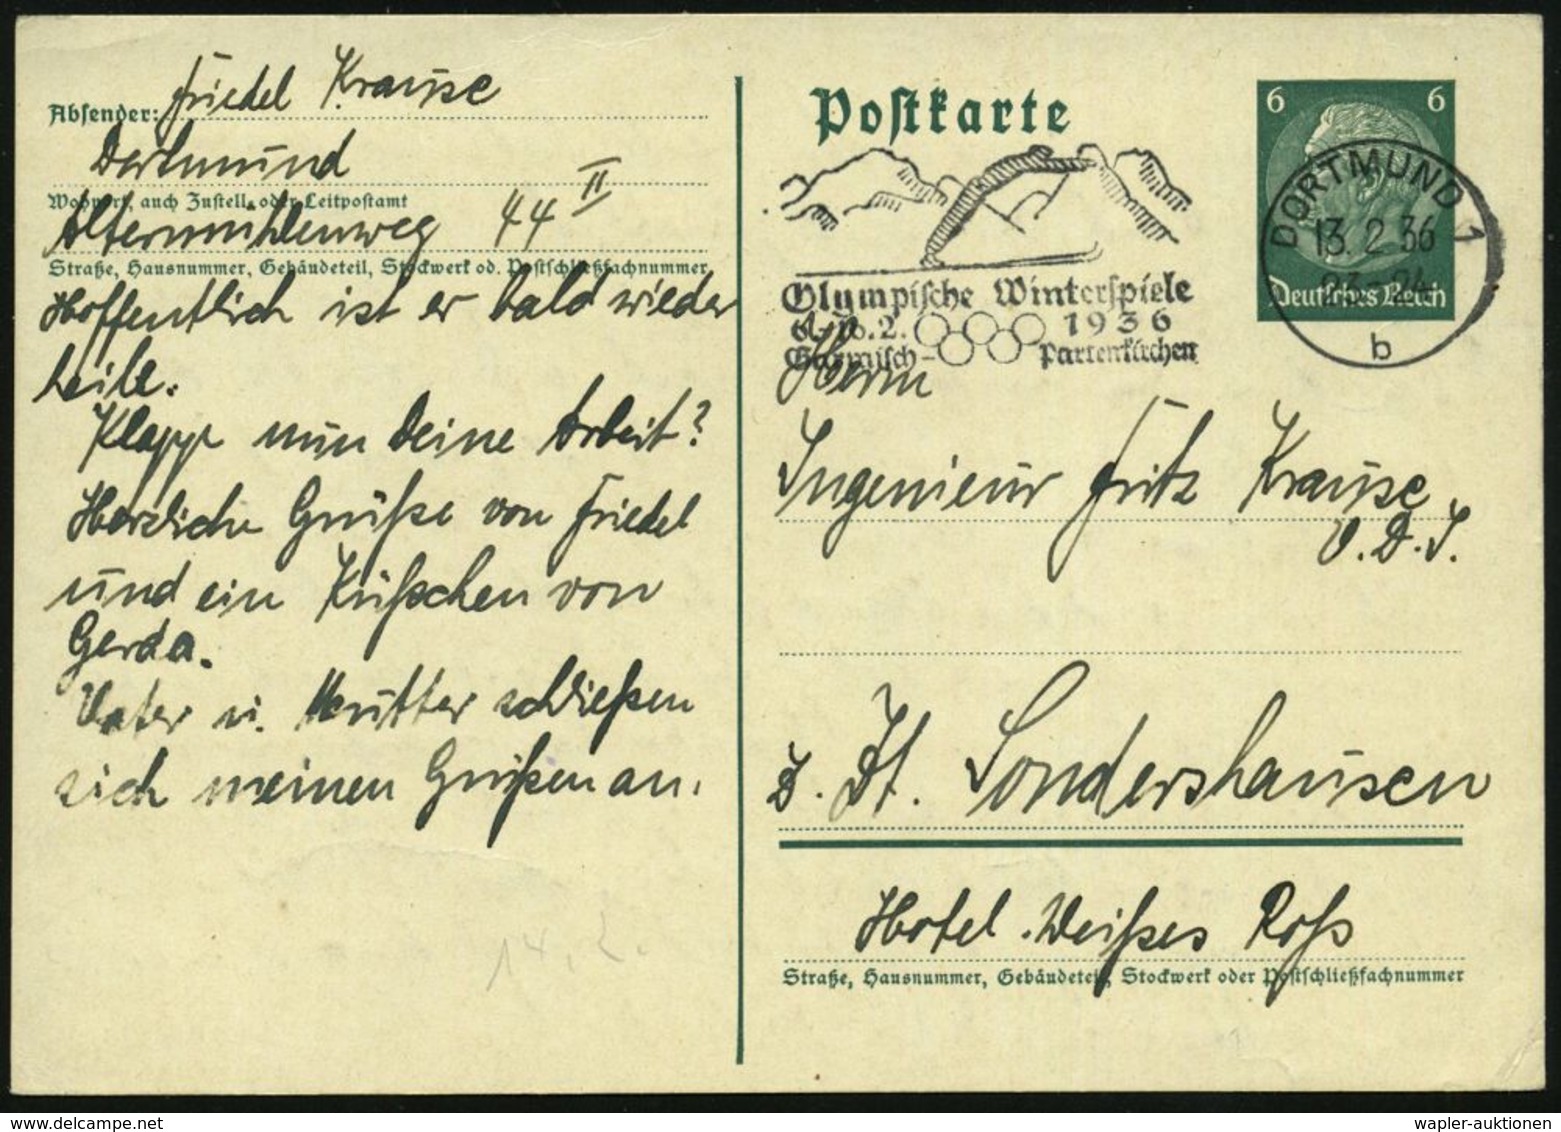 Absender: Friedel Krause
Dortmund
Wohnort, auch Zustell- oder Leitpostamt
Altermühlenweg 44 II
Straße, Hausnummer, Gebäudeteil, Stockwerk od. Postschließfachnummer
Hoffentlich ist er bald wieder
heile.
Klappt nun Deine Arbeit?
Herzliche Grüße von Friedel
und ein Küßchen von
Gerda.
Vater u. Mutter schließen
sich meinen Grüßen an.
14. 2.
Postkarte
6 6
Deutsches Reich
DORTMUND 1
13.2.36
23-24
b
Olympische Winterspiele
6.-16.2. 1936
Garmisch- Partenkirchen
Herrn
Ingenieur Fritz Krause
V.D.I.
z. Zt. Sondershausen
Hotel Weißes Roß
Straße, Hausnummer, Gebäudeteil, Stockwerk oder Postschließfachnummer
wapler-auktionen